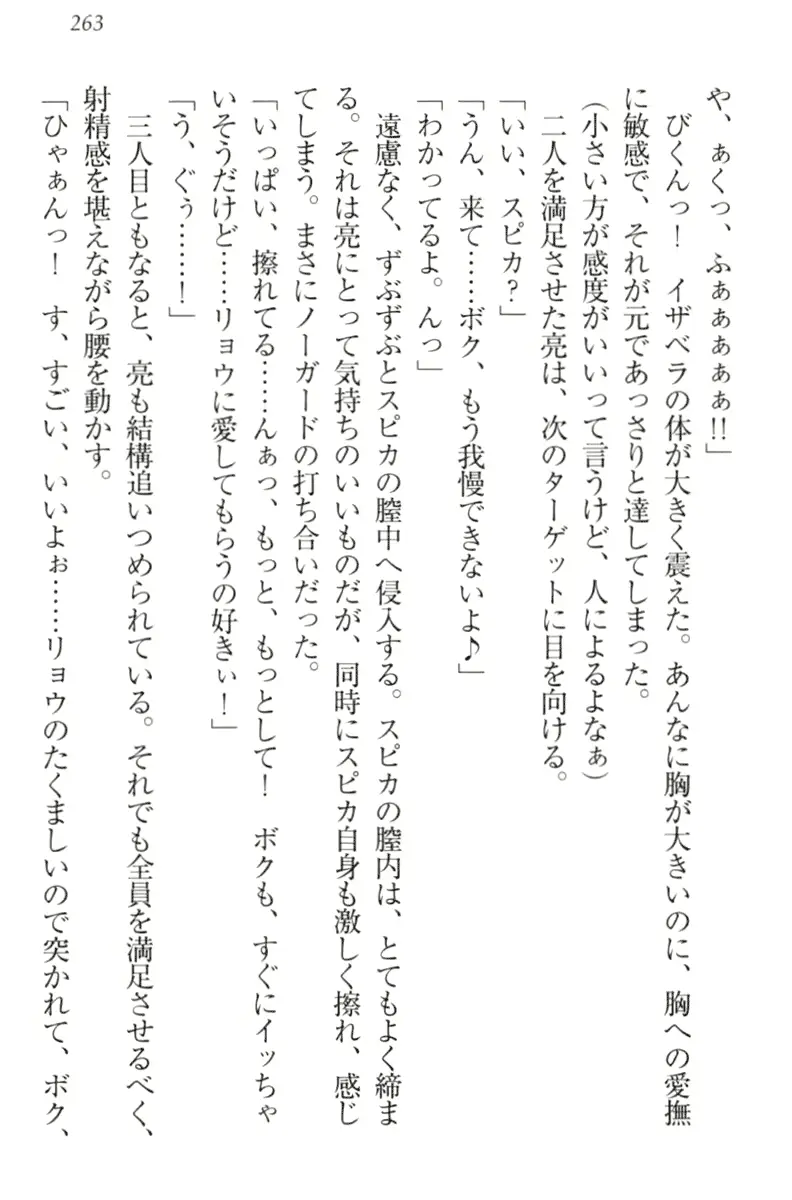 263
や、ぁくっ、ふぁぁぁぁぁ!!」
　びくんっ！　イザベラの体が大きく震えた。あんなに胸が大きいのに、胸への愛撫
に敏感で、それが元であっさりと達してしまった。
（小さい方が感度がいいって言うけど、人によるよなぁ）
　二人を満足させた亮は、次のターゲットに目を向ける。
「いい、スピカ？」
「うん、来て……ボク、もう我慢できないよ♪」
「わかってるよ。んっ」
　遠慮なく、ずぶずぶとスピカの膣中へ侵入する。スピカの膣内は、とてもよく締ま
る。それは亮にとって気持ちのいいものだが、同時にスピカ自身も激しく擦れ、感じ
てしまう。まさにノーガードの打ち合いだった。
「いっぱい、擦れてる……んぁっ、もっと、もっとして！　ボクも、すぐにイッちゃ
いそうだけど……リョウに愛してもらうの好きぃ！」
「う、ぐぅ……！」
　三人目ともなると、亮も結構追いつめられている。それでも全員を満足させるべく、
射精感を堪えながら腰を動かす。
「ひゃぁんっ！　す、すごい、いいよぉ……リョウのたくましいので突かれて、ボク、